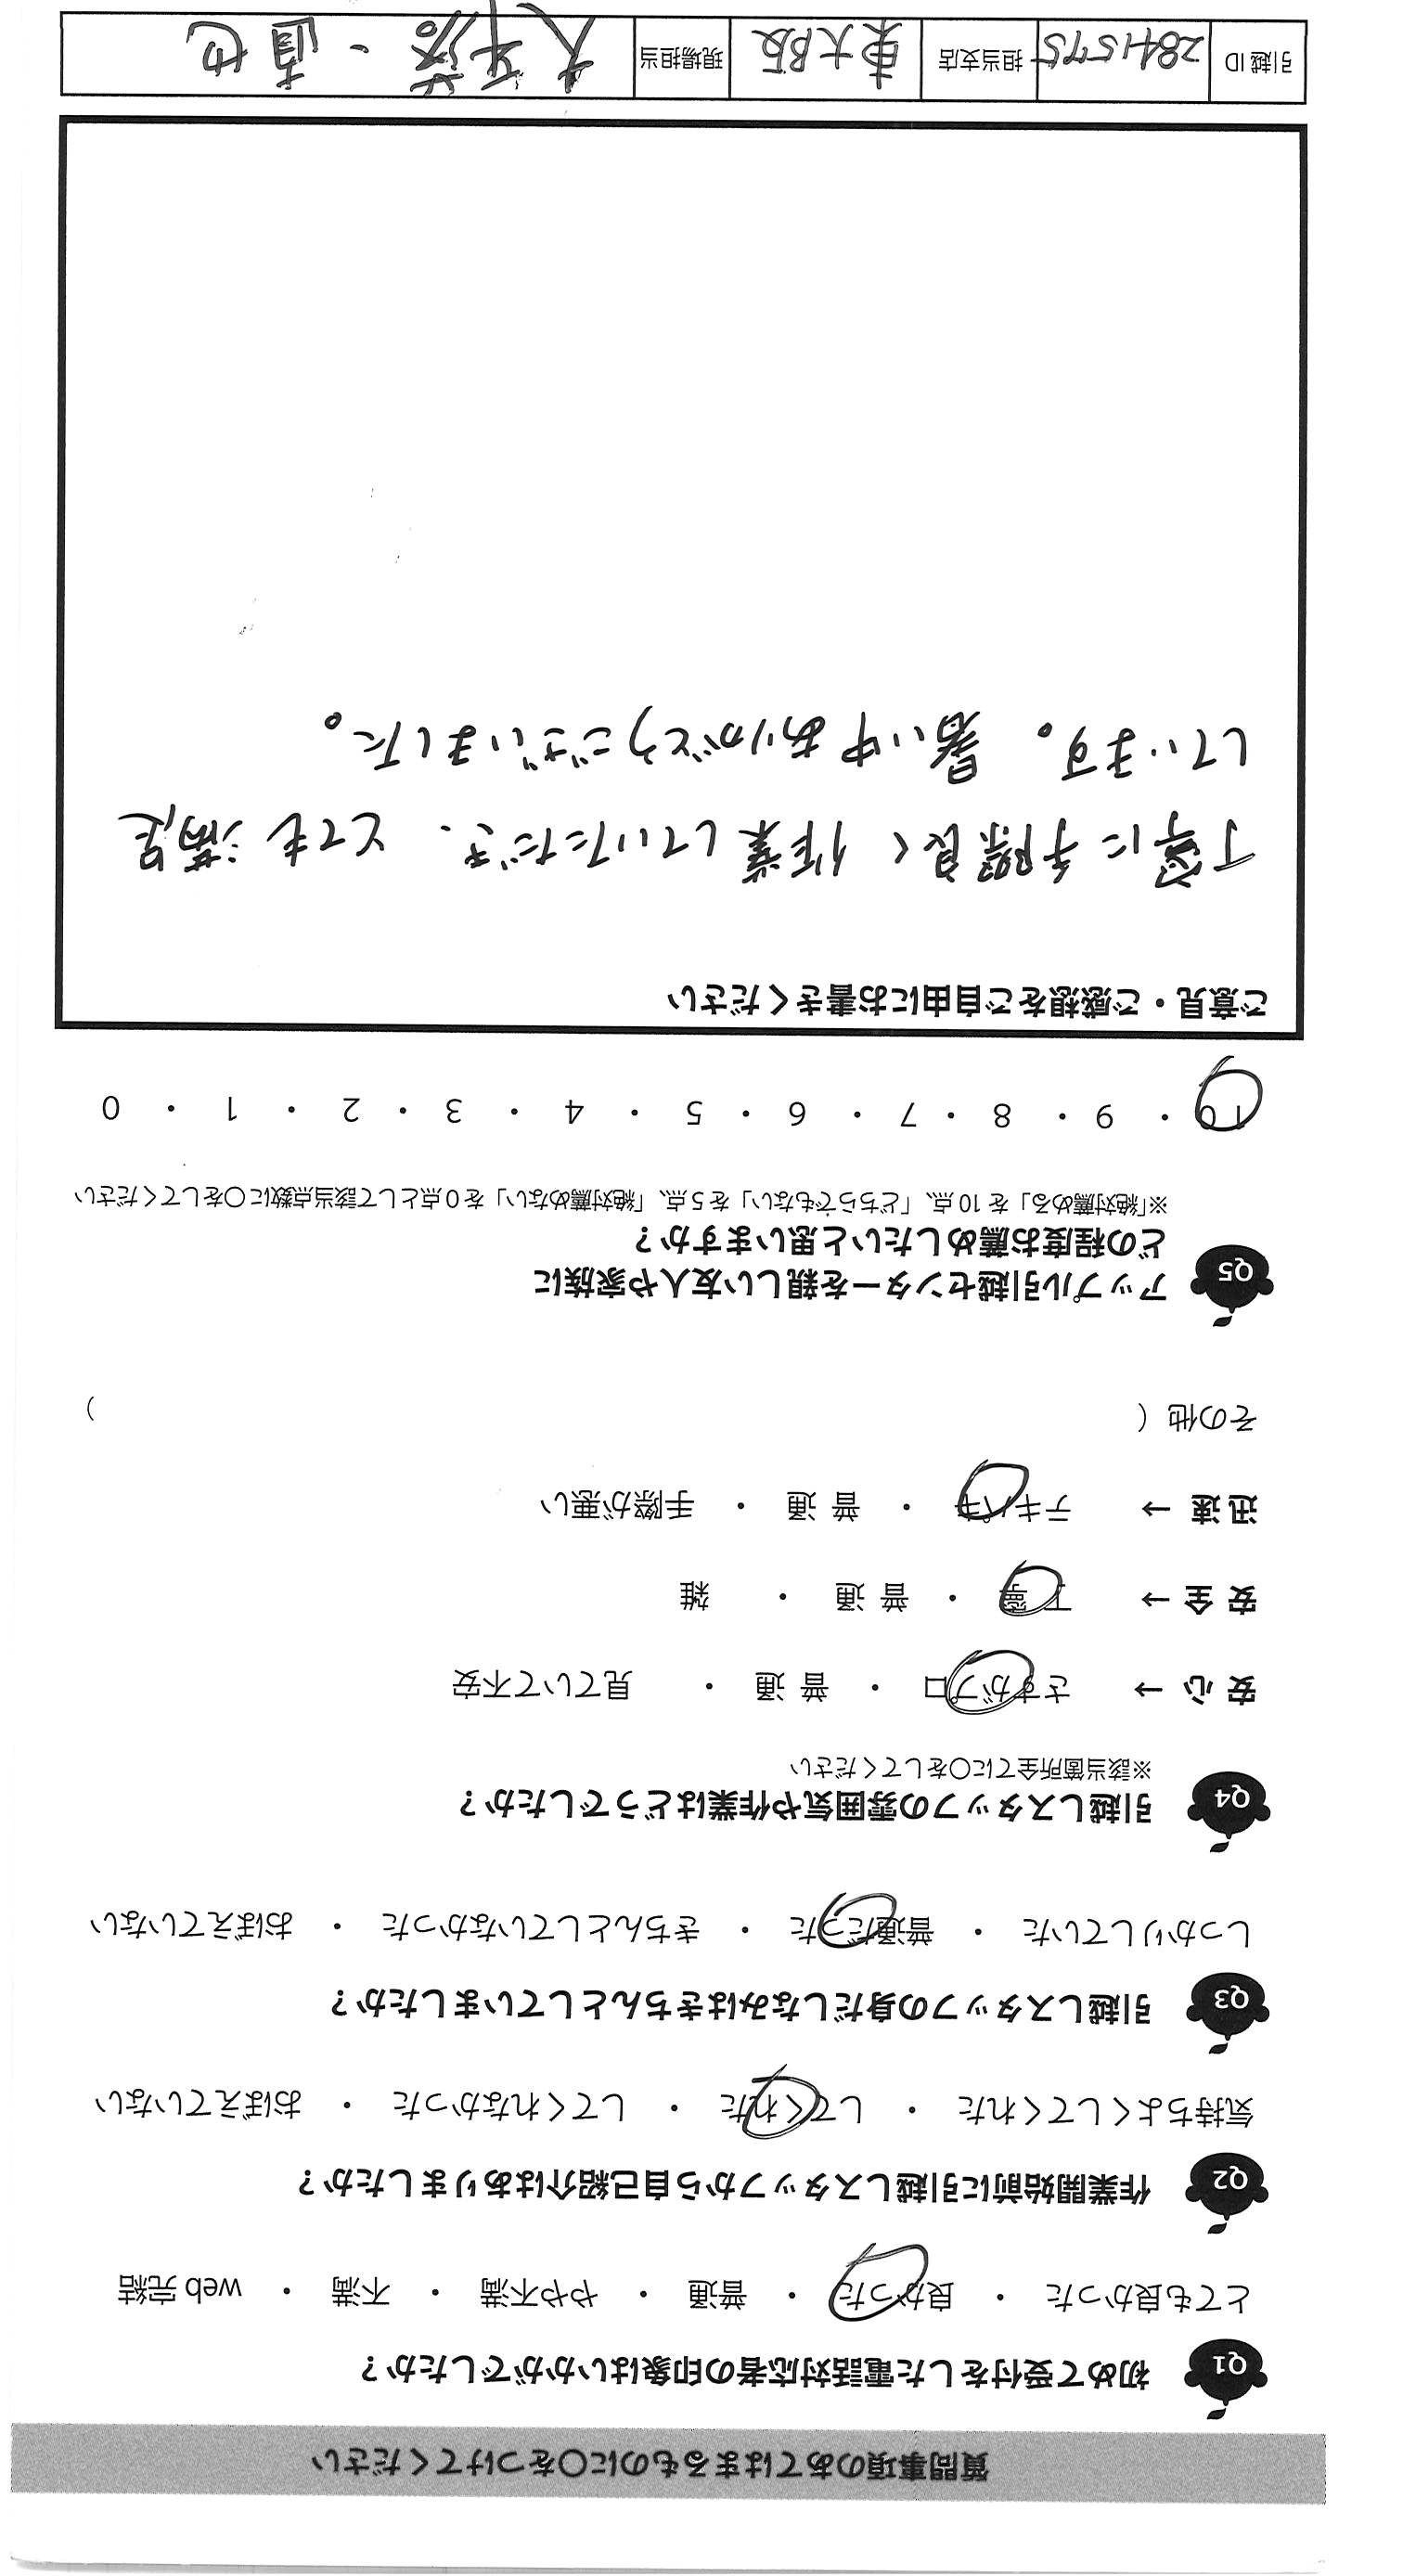 質問事項のあてはまるものに○をつけてください
Q1 初めて受付をした電話対応者の印象はいかがでしたか？
とても良かった ・ 良かった ・ 普通 ・ やや不満 ・ 不満 ・ web 完結
Q2 作業開始前に引越しスタッフから自己紹介はありましたか？
気持ちよくしてくれた ・ してくれた ・ してくれなかった ・ おぼえていない
Q3 引越しスタッフの身だしなみはきちんとしていましたか？
しっかりしていた ・ 普通だった ・ きちんとしていなかった ・ おぼえていない
Q4 引越しスタッフの雰囲気や作業はどうでしたか？
※該当箇所全てに○をしてください
安心 → さすがプロ ・ 普通 ・ 見ていて不安
安全 → 丁寧 ・ 普通 ・ 雑
迅速 → テキパキ ・ 普通 ・ 手際が悪い
その他（ ）
Q5 アップル引越センターを親しい友人や家族に
どの程度お薦めしたいと思いますか？
※「絶対薦める」を 10 点、「どちらでもない」を 5 点、「絶対薦めない」を 0 点として該当点数に○をしてください
10 ・ 9 ・ 8 ・ 7 ・ 6 ・ 5 ・ 4 ・ 3 ・ 2 ・ 1 ・ 0
ご意見・ご感想をご自由にお書きください
丁寧に手際良く作業していただき、とても満足
しています。暑い中ありがとうございました。
引越 ID 2841575 担当支店 東大阪 現場担当 直也